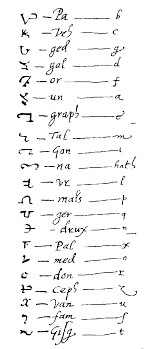 Pa — b
Veh — c
ged — g
gal — d
or — f
un — a
graph — e
Tal — m
Gon — i
na — hath
vr — l
mals — p
ger — q
drux — n
Pal — x
med — o
don — r
ceph — z
van — u
fam — s
Gisg — t